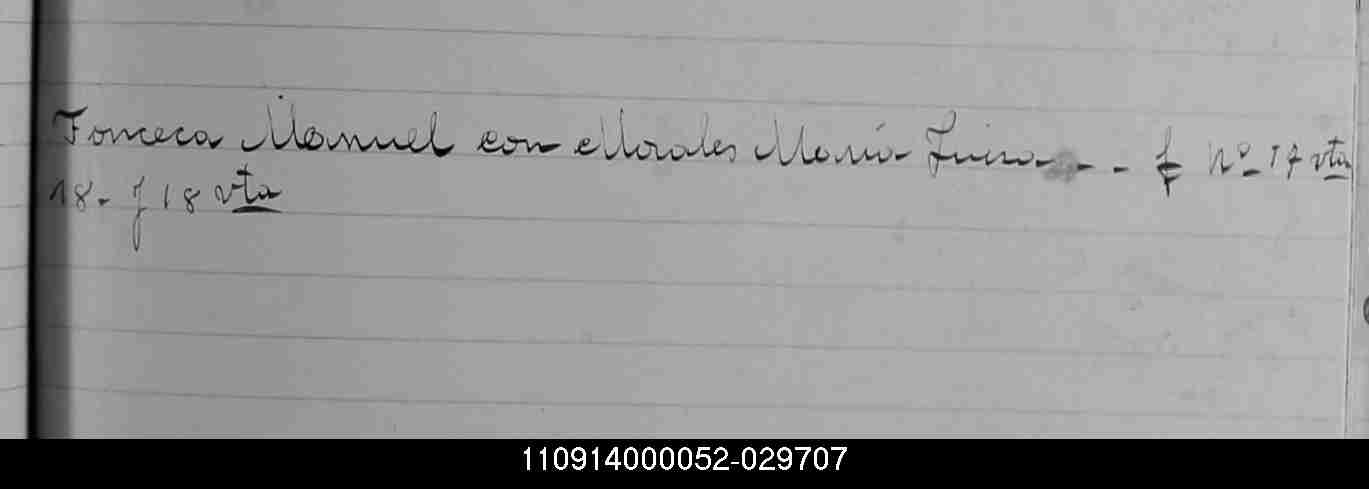 Fonceca Manuel con Morales María - - - f Nº 17 vta
18 - f 18 vta
110914000052-029707